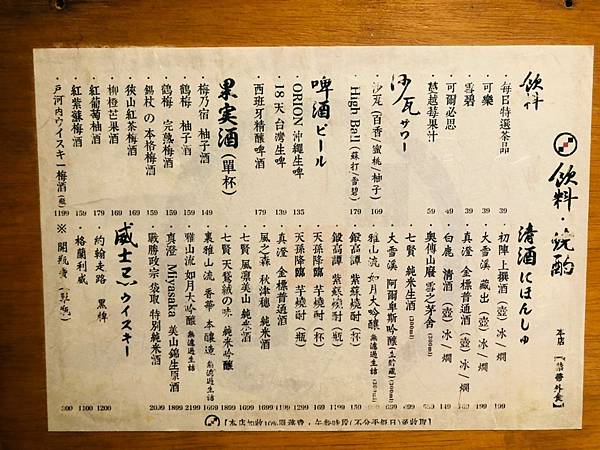 飲料・燒酌
本店【禁帶外食】
飲料
・每日特選茶品 39
・可樂 39
・雪碧 39
・可爾必思 49
・蔓越莓果汁 59
沙瓦サワー
・沙瓦(百香/蜜桃/柚子) 169
・High Ball(蘇打/雪碧) 179
啤酒ビール
・ORION沖繩生啤 135
・18天台灣生啤 139
・西班牙精釀啤酒 179
果実酒(單杯)
・梅乃宿 柚子酒 149
・鶴梅 柚子酒 159
・鶴梅 完熟梅酒 159
・錫杖の本格梅酒 159
・狹山紅茶梅酒 169
・柳橙芒果酒 169
・紅葡萄柚酒 179
・紅紫蘇梅酒 159
・戸河內ウイスキー梅酒(瓶) 1199
清酒にほんしゅ
・初陣上撰酒(壺)冰/燗 199
・大雪溪 藏出(壺)冰/燗 199
・真澄 金標普通酒(壺)冰/燗
・白鹿 清酒(壺)冰/燗 149
・奧傳山廢 雲之茅舍(300ml)
・七賢 純米生酒(300ml)
・大雪溪 阿爾卑斯吟釀(生貯藏)(300ml) 699
・雅山流 如月大吟釀 無濾過生詰
・鍛高譚 紫蘇燒酎(杯) 150
・鍛高譚 紫蘇燒酎(瓶) 1199
・天孫降臨 芋燒酎(杯) 169
・天孫降臨 芋燒酎(瓶) 1299
・真澄 金標普通酒 1199
・風之森 秋津穗 純米酒 1699
・七賢 風凜美山 純米酒 1699
・七賢 天鵞絨の味 純米吟釀 1899
・裏雅山流 香華 本釀造 無濾過生詰 1699
・雅山流 如月大吟釀 無濾過生詰 2199
・真澄 Miyasaka 美山錦生原酒 1899
・戰勝政宗 袋取 特別純米酒 2099
威士忌ウイスキー
・約翰走路 黑牌 1200
・格蘭利威 1100
※開瓶費(點瓶) 300